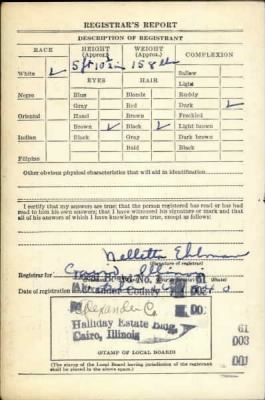 REGISTRAR'S REPORT
DESCRIPTION OF REGISTRANT
RACE HEIGHT (Approx.) WEIGHT (Approx.) COMPLEXION
5 ft 10½ in 158 lb
White ✓ Sallow
EYES HAIR Light
Negro Blue Blonde Ruddy
Gray Red Dark ✓
Oriental Hazel Brown Freckled
Brown ✓ Black ✓ Light brown
Indian Black Gray Dark brown
Bald Black
Filipino
Other obvious physical characteristics that will aid in identification
I certify that my answers are true; that the person registered has read or has had
read to him his own answers; that I have witnessed his signature or mark and that
all of his answers of which I have knowledge are true, except as follows:
Nelletta
(Signature of registrar)
Registrar for Illinois
Board No. 1 61
Date of registration Alexander County 003
Alexander C.
Halliday Estate Bldg.
Cairo, Illinois
61
003
(STAMP OF LOCAL BOARD)
(The stamp of the Local Board having jurisdiction of the registrant
shall be placed in the above space.)